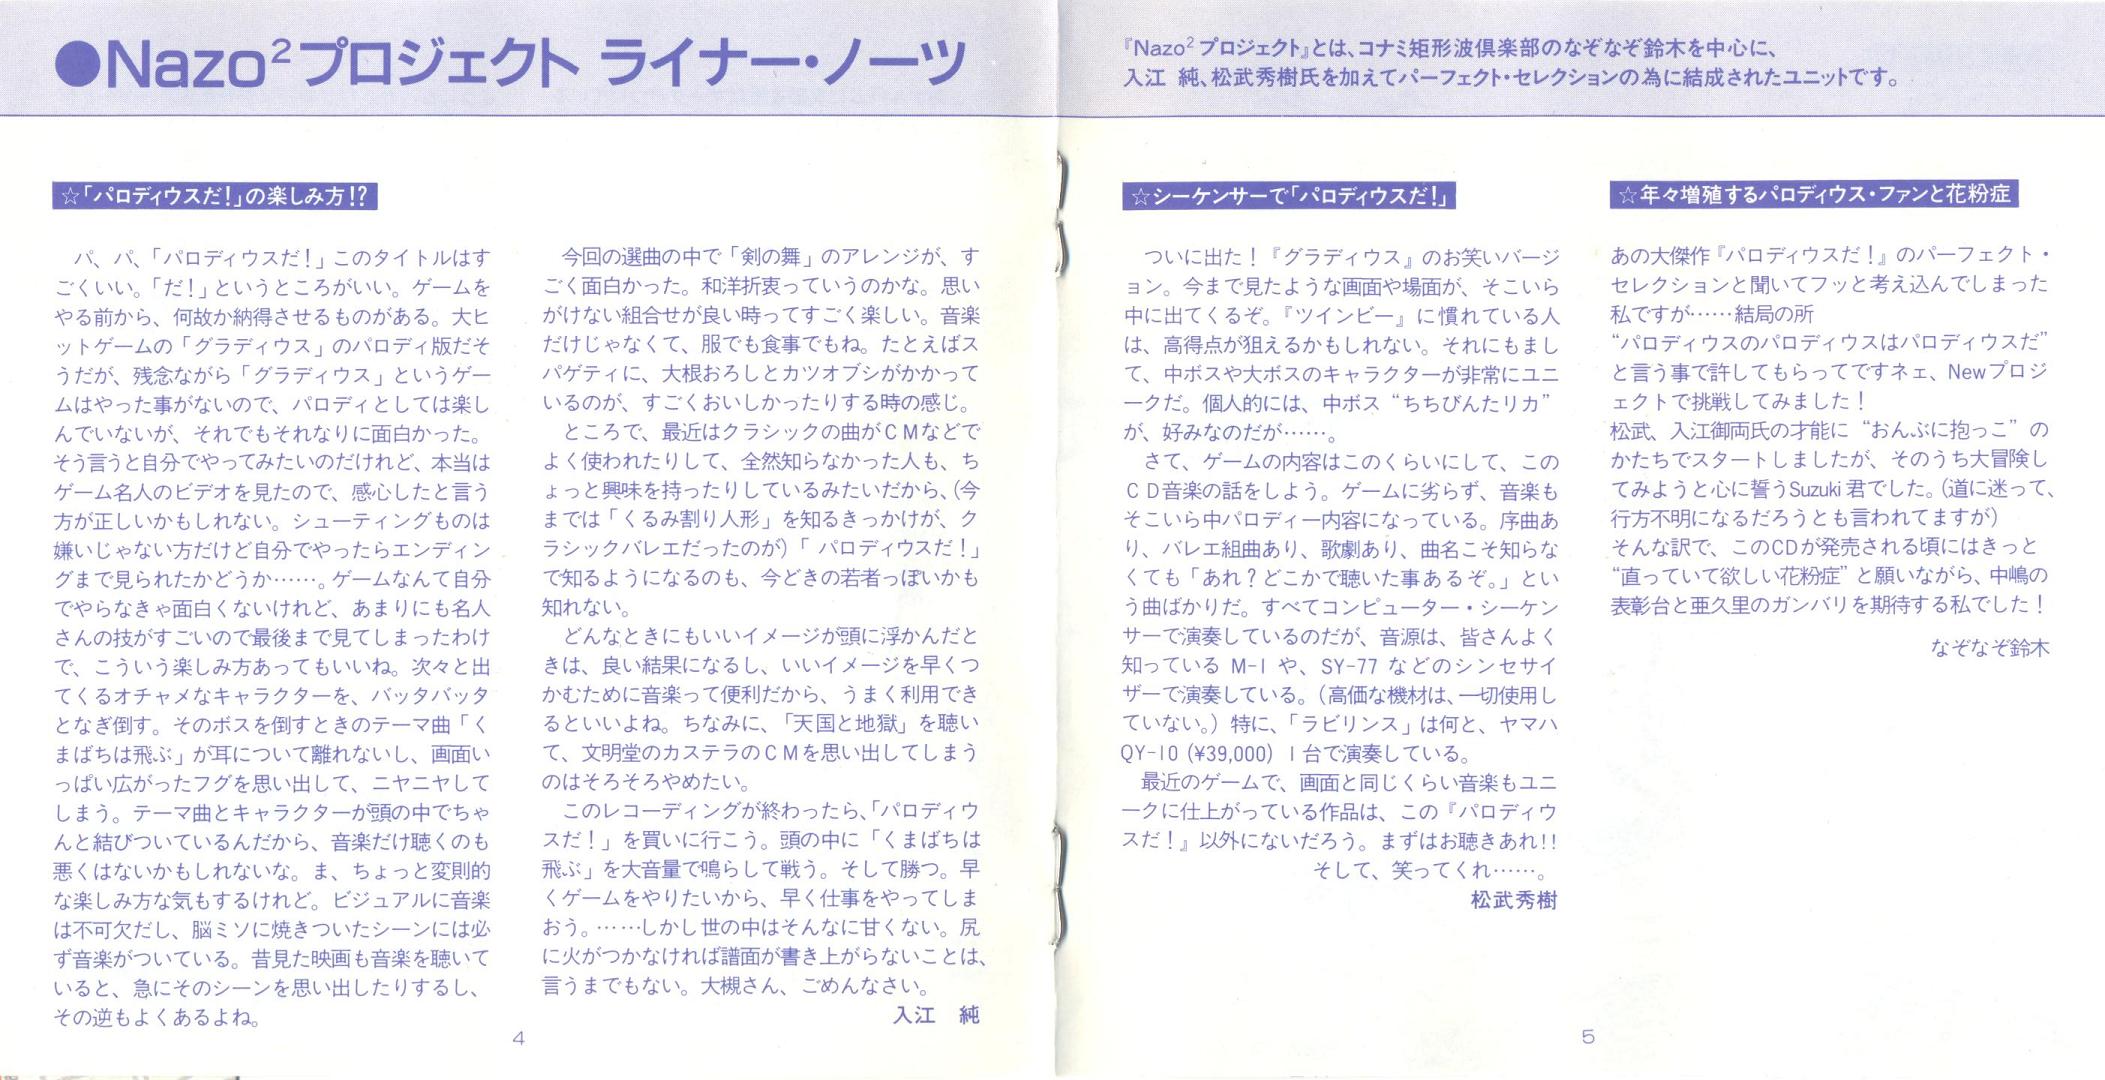 ●Nazo²プロジェクト ライナー・ノーツ
『Nazo²プロジェクト』とは、コナミ矩形波倶楽部のなぞなぞ鈴木を中心に、
入江 純、松武秀樹氏を加えてパーフェクト・セレクションの為に結成されたユニットです。
☆「パロディウスだ!」の楽しみ方!?
パ、パ、「パロディウスだ!」このタイトルはす
ごくいい。「だ!」というところがいい。ゲームを
やる前から、何故か納得させるものがある。大ヒ
ットゲームの「グラディウス」のパロディ版だそ
うだが、残念ながら「グラディウス」というゲー
ムはやった事がないので、パロディとしては楽し
んでいないが、それでもそれなりに面白かった。
そう言うと自分でやってみたいのだけれど、本当は
ゲーム名人のビデオを見たので、感心したと言う
方が正しいかもしれない。シューティングものは
嫌いじゃない方だけど自分でやったらエンディン
グまで見られたかどうか……。ゲームなんて自分
でやらなきゃ面白くないけれど、あまりにも名人
さんの技がすごいので最後まで見てしまったわけ
で、こういう楽しみ方あってもいいね。次々と出
てくるオチャメなキャラクターを、バッタバッタ
となぎ倒す。そのボスを倒すときのテーマ曲「く
まばちは飛ぶ」が耳について離れないし、画面い
っぱい広がったフグを思い出して、ニヤニヤして
しまう。テーマ曲とキャラクターが頭の中でちゃ
んと結びついているんだから、音楽だけ聴くのも
悪くはないかもしれないな。ま、ちょっと変則的
な楽しみ方な気もするけれど。ビジュアルに音楽
は不可欠だし、脳ミソに焼きついたシーンには必
ず音楽がついている。昔見た映画も音楽を聴いて
いると、急にそのシーンを思い出したりするし、
その逆もよくあるよね。
今回の選曲の中で「剣の舞」のアレンジが、す
ごく面白かった。和洋折衷っていうのかな。思い
がけない組合せが良い時ってすごく楽しい。音楽
だけじゃなくて、服でも食事でもね。たとえばス
パゲティに、大根おろしとカツオブシがかかって
いるのが、すごくおいしかったりする時の感じ。
ところで、最近はクラシックの曲がCMなどで
よく使われたりして、全然知らなかった人も、ち
ょっと興味を持ったりしているみたいだから、(今
までは「くるみ割り人形」を知るきっかけが、ク
ラシックバレエだったのが)「パロディウスだ!」
で知るようになるのも、今どきの若者っぽいかも
知れない。
どんなときにもいいイメージが頭に浮かんだと
きは、良い結果になるし、いいイメージを早くつ
かむために音楽って便利だから、うまく利用でき
るといいよね。ちなみに、「天国と地獄」を聴い
て、文明堂のカステラのCMを思い出してしまう
のはそろそろやめたい。
このレコーディングが終わったら、「パロディウ
スだ!」を買いに行こう。頭の中に「くまばちは
飛ぶ」を大音量で鳴らして戦う。そして勝つ。早
くゲームをやりたいから、早く仕事をやってしま
おう。……しかし世の中はそんなに甘くない。尻
に火がつかなければ譜面が書き上がらないことは、
言うまでもない。大槻さん、ごめんなさい。
入江 純
4
☆シーケンサーで「パロディウスだ!」
ついに出た!『グラディウス』のお笑いバージ
ョン。今まで見たような画面や場面が、そこいら
中に出てくるぞ。『ツインビー』に慣れている人
は、高得点が狙えるかもしれない。それにもまし
て、中ボスや大ボスのキャラクターが非常にユニ
ークだ。個人的には、中ボス“ちちびんたリカ”
が、好みなのだが……。
さて、ゲームの内容はこのくらいにして、この
CD音楽の話をしよう。ゲームに劣らず、音楽も
そこいら中パロディー内容になっている。序曲あ
り、バレエ組曲あり、歌劇あり、曲名こそ知らな
くても「あれ?どこかで聴いた事あるぞ。」とい
う曲ばかりだ。すべてコンピューター・シーケン
サーで演奏しているのだが、音源は、皆さんよく
知っている M-1 や、SY-77 などのシンセサイ
ザーで演奏している。(高価な機材は、一切使用し
ていない。)特に、「ラビリンス」は何と、ヤマハ
QY-10 (¥39,000) 1台で演奏している。
最近のゲームで、画面と同じくらい音楽もユニ
ークに仕上がっている作品は、この『パロディウ
スだ!』以外にないだろう。まずはお聴きあれ!!
そして、笑ってくれ……。
松武秀樹
☆年々増殖するパロディウス・ファンと花粉症
あの大傑作『パロディウスだ!』のパーフェクト・
セレクションと聞いてフッと考え込んでしまった
私ですが……結局の所
“パロディウスのパロディウスはパロディウスだ”
と言う事で許してもらってですネェ、Newプロジ
ェクトで挑戦してみました!
松武、入江御両氏の才能に“おんぶに抱っこ”の
かたちでスタートしましたが、そのうち大冒険し
てみようと心に誓うSuzuki君でした。(道に迷って、
行方不明になるだろうとも言われてますが)
そんな訳で、このCDが発売される頃にはきっと
“直っていて欲しい花粉症”と願いながら、中嶋の
表彰台と亜久里のガンバリを期待する私でした!
なぞなぞ鈴木
5